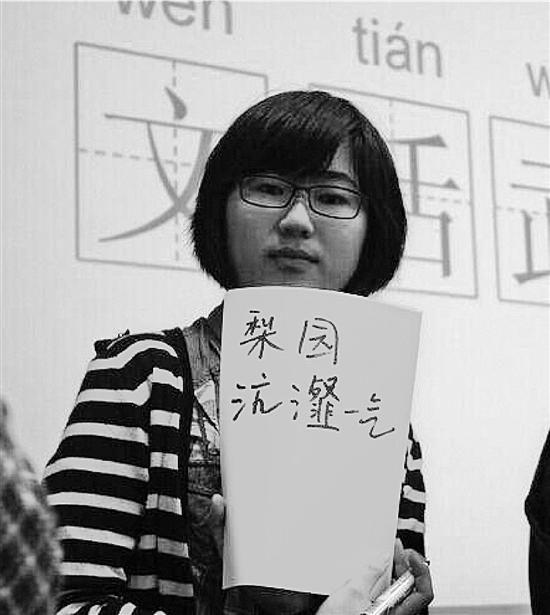 wén tián
文
梨园
沆瀣一气